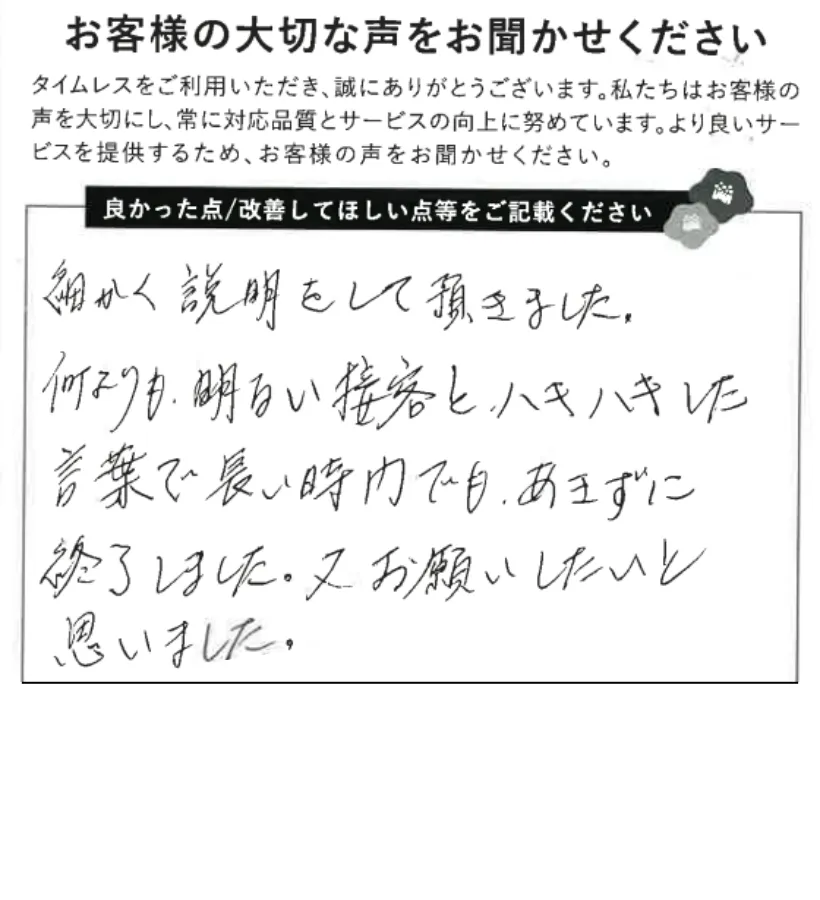 お客様の大切な声をお聞かせください
タイムレスをご利用いただき、誠にありがとうございます。私たちはお客様の
声を大切にし、常に対応品質とサービスの向上に努めています。より良いサー
ビスを提供するため、お客様の声をお聞かせください。
良かった点/改善してほしい点等をご記載ください
細かく説明をして頂きました。
何よりも、明るい接客と、ハキハキした
言葉で長い時間でも、あきずに
終了しました。又お願いしたいと
思いました。